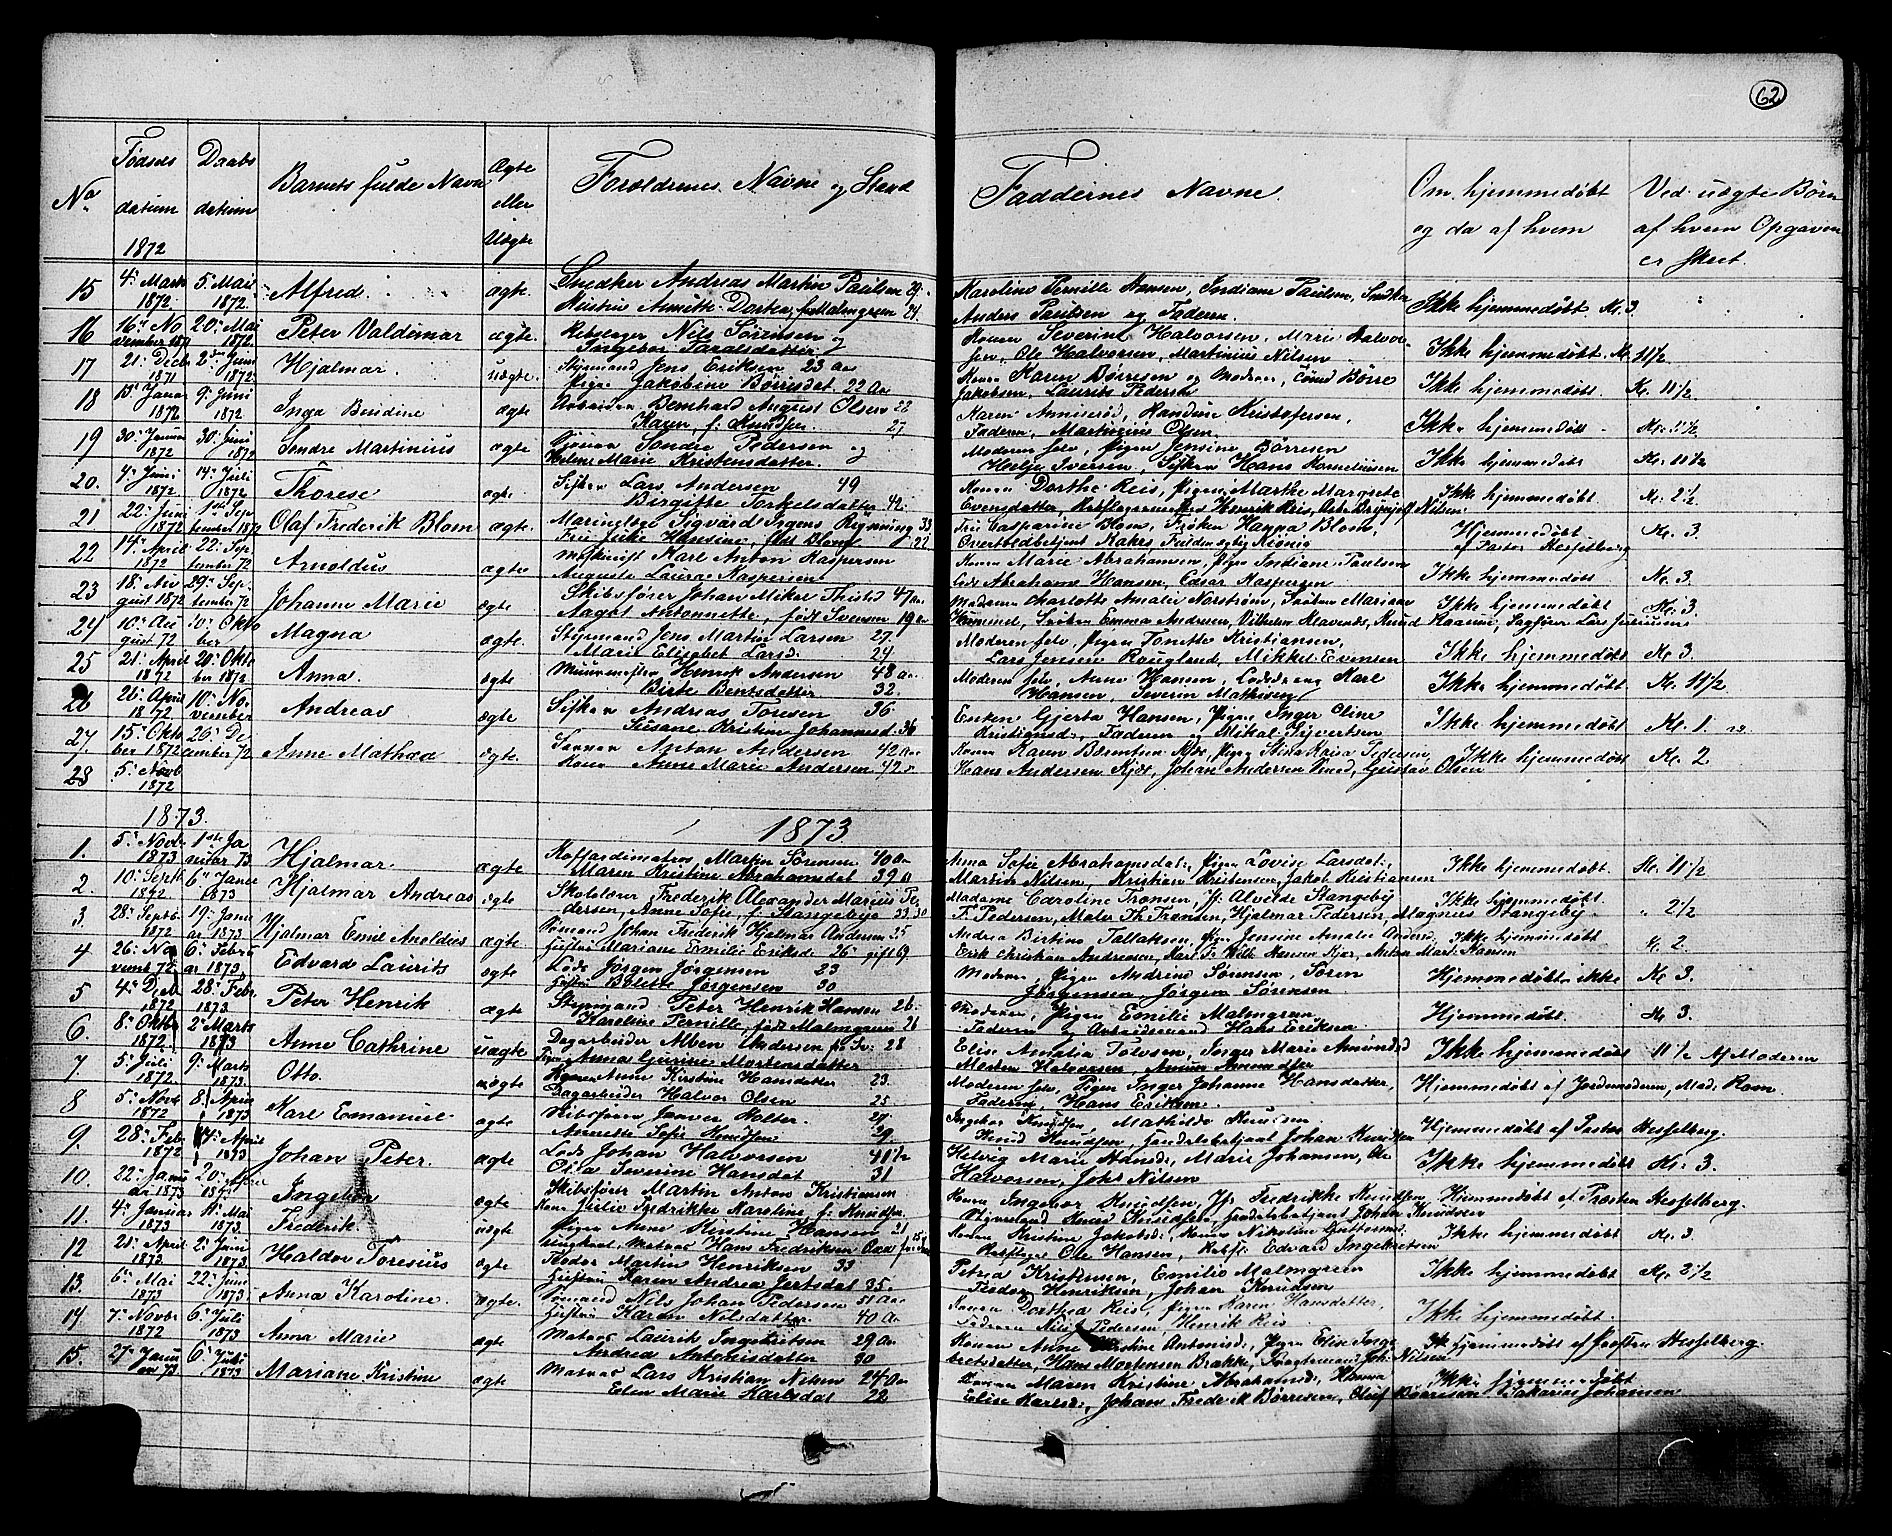 62
No Fødsels datum Daabs datum Barnets fulde Navn Ægte eller Uægte Forældrenes Navne og Stand Faddernes Navne. Om hjemmedøbt og da af hvem Ved uægte Børn af hvem Opgaven er skeet.
1872
15 4. Marts 1872. 5. Mai 1872. Alfred. ægte. Snedker Andreas Martin Paulsen 29. Karoline Pernille Hansen, Indiane Paulsen, Snedker Ikke hjemmedøbt. Kl. 3
Anders Paulsen og Faderen.
16 16. November 1871 20. Mai 1872. Peter Valdemar ægte. Rebslager Nils Sørensen og Konen Severine Halvorsen, Marie Halvorsen, Ole Halvorsen, Martinius Nilsen Ikke hjemmedøbt. Kl. 11 1/2
17 21. Decb 1871 2den Juni 1872. Hjalmar. uægte. Styrmand Jens Eriksen 23 Aar
Pige Jakobine Børresdat. 22 Aar Konen Karen Børresen og Moderen, Børre Jakobsen, Laurits Pedersen Ikke hjemmedøbt Kl. 11 1/2
18 15. Januar 1872 9. Juni 1872 Inga Bendine ægte Arbeider Bernhard August Olsen 28
Karen, f. Knudsen. 27 Karen Anniserød, Handine Kristofersen,
Faderen, Martinius Olsen. Ikke hjemmedøbt. Kl. 11 1/2
19 30. Januar 1872 30. Juni 1872 Sondre Martinius ægte Sondre Pedersen og
Helene Marie Kristensdatter. Moderen selv, Pigen Jensine Børresen
Helje Iversen, Hans Kornelinsen Ikke hjemmedøbt Kl. 11 1/2
20. 4. Juni 1872 14. Juli 1872 Thorese ægte. Lars Andersen 49
Birgitte Torkelsdatter 42. Konen Dorthe Reis, Pigen Marthe Margrete
Evensdatter, Henrik Reis, Nilsen Ikke hjemmedøbt Kl. 2 1/2
21 22. Juni 1872 1ste September 1872 Olaf Frederik Blom ægte. Sigvard Rynning 33
22. Casparine Blom, Frøken Hanna Blom, Hjemmedøbt
af Pastor Hesselberg Kl. 3
22 14. April 1872 22. September 72 Arnoldus ægte Maskinist Karl Anton Kaspersen
Auguste Laura Kaspersen Konen Marie Abrahamsen, Pigen Indiane Paulsen
Lods Abrahams Hansen, Cæsar Kaspersen Ikke hjemmedøbt Kl. 3.
23 18. August 1872 29. September 72 Johanne Marie ægte Skibsfører Johan Mikæl Thisted 47 Aar
Aagot Antonnette, født Svensen 19 Aar Madame Charlotte Amalie Norstrøm, Frøken Mariane
Hummel, Frøken Emma Andersen, Vilhelm Klavenæs, Knud Haaein, Sagfører Lars Julinsen Ikke hjemmedøbt Kl. 3
24 10. August 72 20. Oktober Magna ægte Styrmand Jens Martin Larsen 27.
Marie Elisabet Larsd. 24 Moderen selv, Pigen Tonette Kristiansen,
Lars Jensen Rougland, Mikkel Evensen Ikke hjemmedøbt Kl. 3.
25 21. April 1872 20. Oktober 1872 Anna. ægte Muurmester Henrik Andersen 48 Aar.
Birte Bentsdatter 32. Moderen selv, Anne Hansen, Lodsdreng Karl
Hansen, Severin Mathisen Ikke hjemmedøbt. Kl. 11 1/2
26 26. April 1872 10. November Andreas ægte Andreas Toresen 36
Susane Kristine Johannesd. 36 Enken Gjerta Hansen, Pigen Inger Oline
Kristiansd., Faderen og Mikal Syvertsen Ikke hjemmedøbt Kl. 1.
27. 15. Oktober 1872 26. December 72 Anne Mathea ægte. Anton Andersen 42 Aar
Kone Anne Marie Andersen 42 Konen Karen Bærntsen Kjær, Pigen Stina Kaisa Pedersen
Hans Andersen Kjær, Johan Andersen, Gustav Olsen Ikke hjemmedøbt Kl. 2
28 5. Novb 1872
1873. 1873
1. 5. Novbr 1873 1ste Januar 73 Hjalmar. ægte Koffardimatros Martin Sørensen 40 Aar
Maren Kristine Abrahamsdat 39 Anna Sofie Abrahamsdat., Pigen Lovise Larsdat.,
Martin Nilsen, Kristian Kristensen, Jakob Kristiansen Ikke hjemmedøbt Kl. 11 1/2
2. 10. Septb 1872 6. Januar 1873 Hjalmar Andreas ægte Skolelærer Frederik Alexander Marius Pedersen, Anne Sofie, f. Stangebye 33. 30 Madame Caroline Transen, Alvilde Stangeby
F. Pedersen, Maler Th. Transen, Hjalmar Pedersen, Magnus Stangeby Ikke hjemmedøbt. 2 1/2
3 28. Septb. 1872 19. Januar 1873 Hjalmar Emil Anoldus ægte Sømand Johan Frederik Hjalmar Andersen 25
Hustru Mariane Emilie Eriksd. 26. gift 69 Andrea Birtine Tallaksen, Pigen Jensine Amalie Andersd
Erik Christian Andreasen Ikke hjemmedøbt Kl. 2
4 26. Novemb 72 6. Februar 1873. Edvard Laurits ægte Lods Jørgen Jørgensen 23
Hustru Bolette Jørgensen 30 Moderen, Pigen Andrine Sørensen, Søren
Jørgensen, Jørgen Sørensen Hjemmedøbt ikke Kl. 3.
5 4. Decb 1872 28. Febr. 1873. Peter Henrik ægte Styrmand Peter Henrik Hansen 26.
Karoline Pernille, født Malmgreen 26 Moderen, Pigen Emilie Malmgreen
Faderen og Arbeidsmand Hans Eriksen Hjemmedøbt. Kl. 3.
6. 8. Oktbr 1872. 2. Marts 1873 Anne Cathrine uægte Dagarbeider Alben Andersen 28
Pigen Anna Gurine Mortensdatter Elise Amalia Tolvsen, Inger Marie Amundsd
Morten Halvorsen, Ikke hjemmedøbt 11 1/2 Af Moderen
7 5. Juli 1872. 9. Marts 1873. Otto. uægte Anne Kirstine Hansdatter 23.
Dagarbeider Halvor Olsen 25 Moderen selv, Pigen Inger Johanne Hansdatter,
Faderen, Hans Eriksen. Hjemmedøbt af Jordemoderen, Mad. Rom.
8 5. Novb 1872 8. April 1873 Karl Emanuel ægte Holter 27.
Nornette Sofie Knudsen 29 Ingebor Knudsen, Mathilde Knudsen
Knud Knudsen, Johan Knudsen Hjemmedøbt af Pastor Hesselberg.
9. 28. Febr 1872 14. April 1873 Johan Peter. ægte Lods Johan Halvorsen 41 1/2
Olia Severine Hansdat 31 Helvig Marie Hansd., Marie Johansen, Ole
Halvorsen, Johs Nilsen Ikke hjemmedøbt Kl. 3.
10. 22. Januar 1873 20. Ingebor ægte Skibsfører Martin Anton Kristiansen
Kone Julie Fredrikke Karoline f. Knudsen. Konen Ingebor Knudsen, Fredrikke Knudsen
Johan Knudsen Hjemmedøbt af Præsten Hesselberg.
11. 4. Januar 1873 11. Mai 1873 Frederik. uægte Pigen Anne Kirstine Hansen 21
Matros Hans Fredriksen Konen Kristine Jakobsd., Konen Nikoline Guttormsd.
Rebslager Ole Hansen, Edvard Ingebretsen Ikke hjemmedøbt Kl. 3.
12 21. April 1873 2. Juni 1873. Haldor Toresius ægte Teodor Martin Henriksen 33
Hustru Karen Andrea Jertsdat 35. Petrea Kristensen, Emilie Malmgreen
Teodor Henriksen, Johan Knudsen Ikke hjemmedøbt Kl. 2 1/2
13. 6. Mai 1873 22. Juni 1873 Anna Karoline. ægte. Sømand Nils Johan Pedersen 51 Aar.
Hustru Karen Nilsdatter 40 Aar Konen Dorthea Reis, Pigen Karen Hansdatter,
Faderen Nils Pedersen Henrik Reis Ikke hjemmedøbt.
14. 7. Novbr 1872 6. Juli 1873 Anna Marie ægte Matros Laurits Ingebritsen 29 Aar
Andrea Antonisdatter 30 Konen Anne Kristine Antonisd., Pigen Elise Ingebretsdatter, Hans Mortensen Brakke, Joh. Nilsen Hjemmedøbt af Presten Hesselberg.
15. 27. Januar 73 6. Juli 1873 Mariane Kristine ægte Matros Lars Kristian Nilsen 24 Aar
Elen Marie Karlsdat 22 Konen Maren Kristine Abrahamsd., Konen
Elise Karlsd., Johan Frederik Børresen, Oluf Børresen Sakarias Johansen Ikke hjemmedøbt